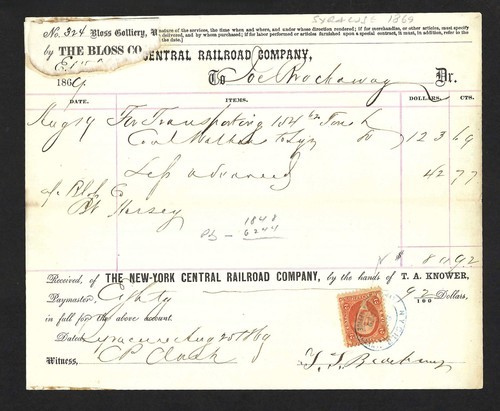 SYRACUSE 1869
No. 324 Bloss Gollery,
nature of the services, the time when and where, and under whose direction rendered; if for merchandise, or other articles, must specify
delivered, and by whom purchased; if for labor performed or articles furnished upon a special contract, it must, in addition, refer to the
the date.]
BY THE BLOSS CO.
CENTRAL RAILROAD COMPANY,
1869.
To Joe Brockaway Dr.
DATE. ITEMS. DOLLARS. CTS.
Aug 19 For Transporting 154 Tons
Coal to Syr 80 123 69
Less advanced 42 77
Hersey
1848
6244
$ 80 92
Received, of THE NEW-YORK CENTRAL RAILROAD COMPANY, by the hands of T. A. KNOWER,
Paymaster, Eighty 92/100 Dollars,
in full for the above account.
Dated Syracuse Aug 20th 1869
Witness, C P Clark